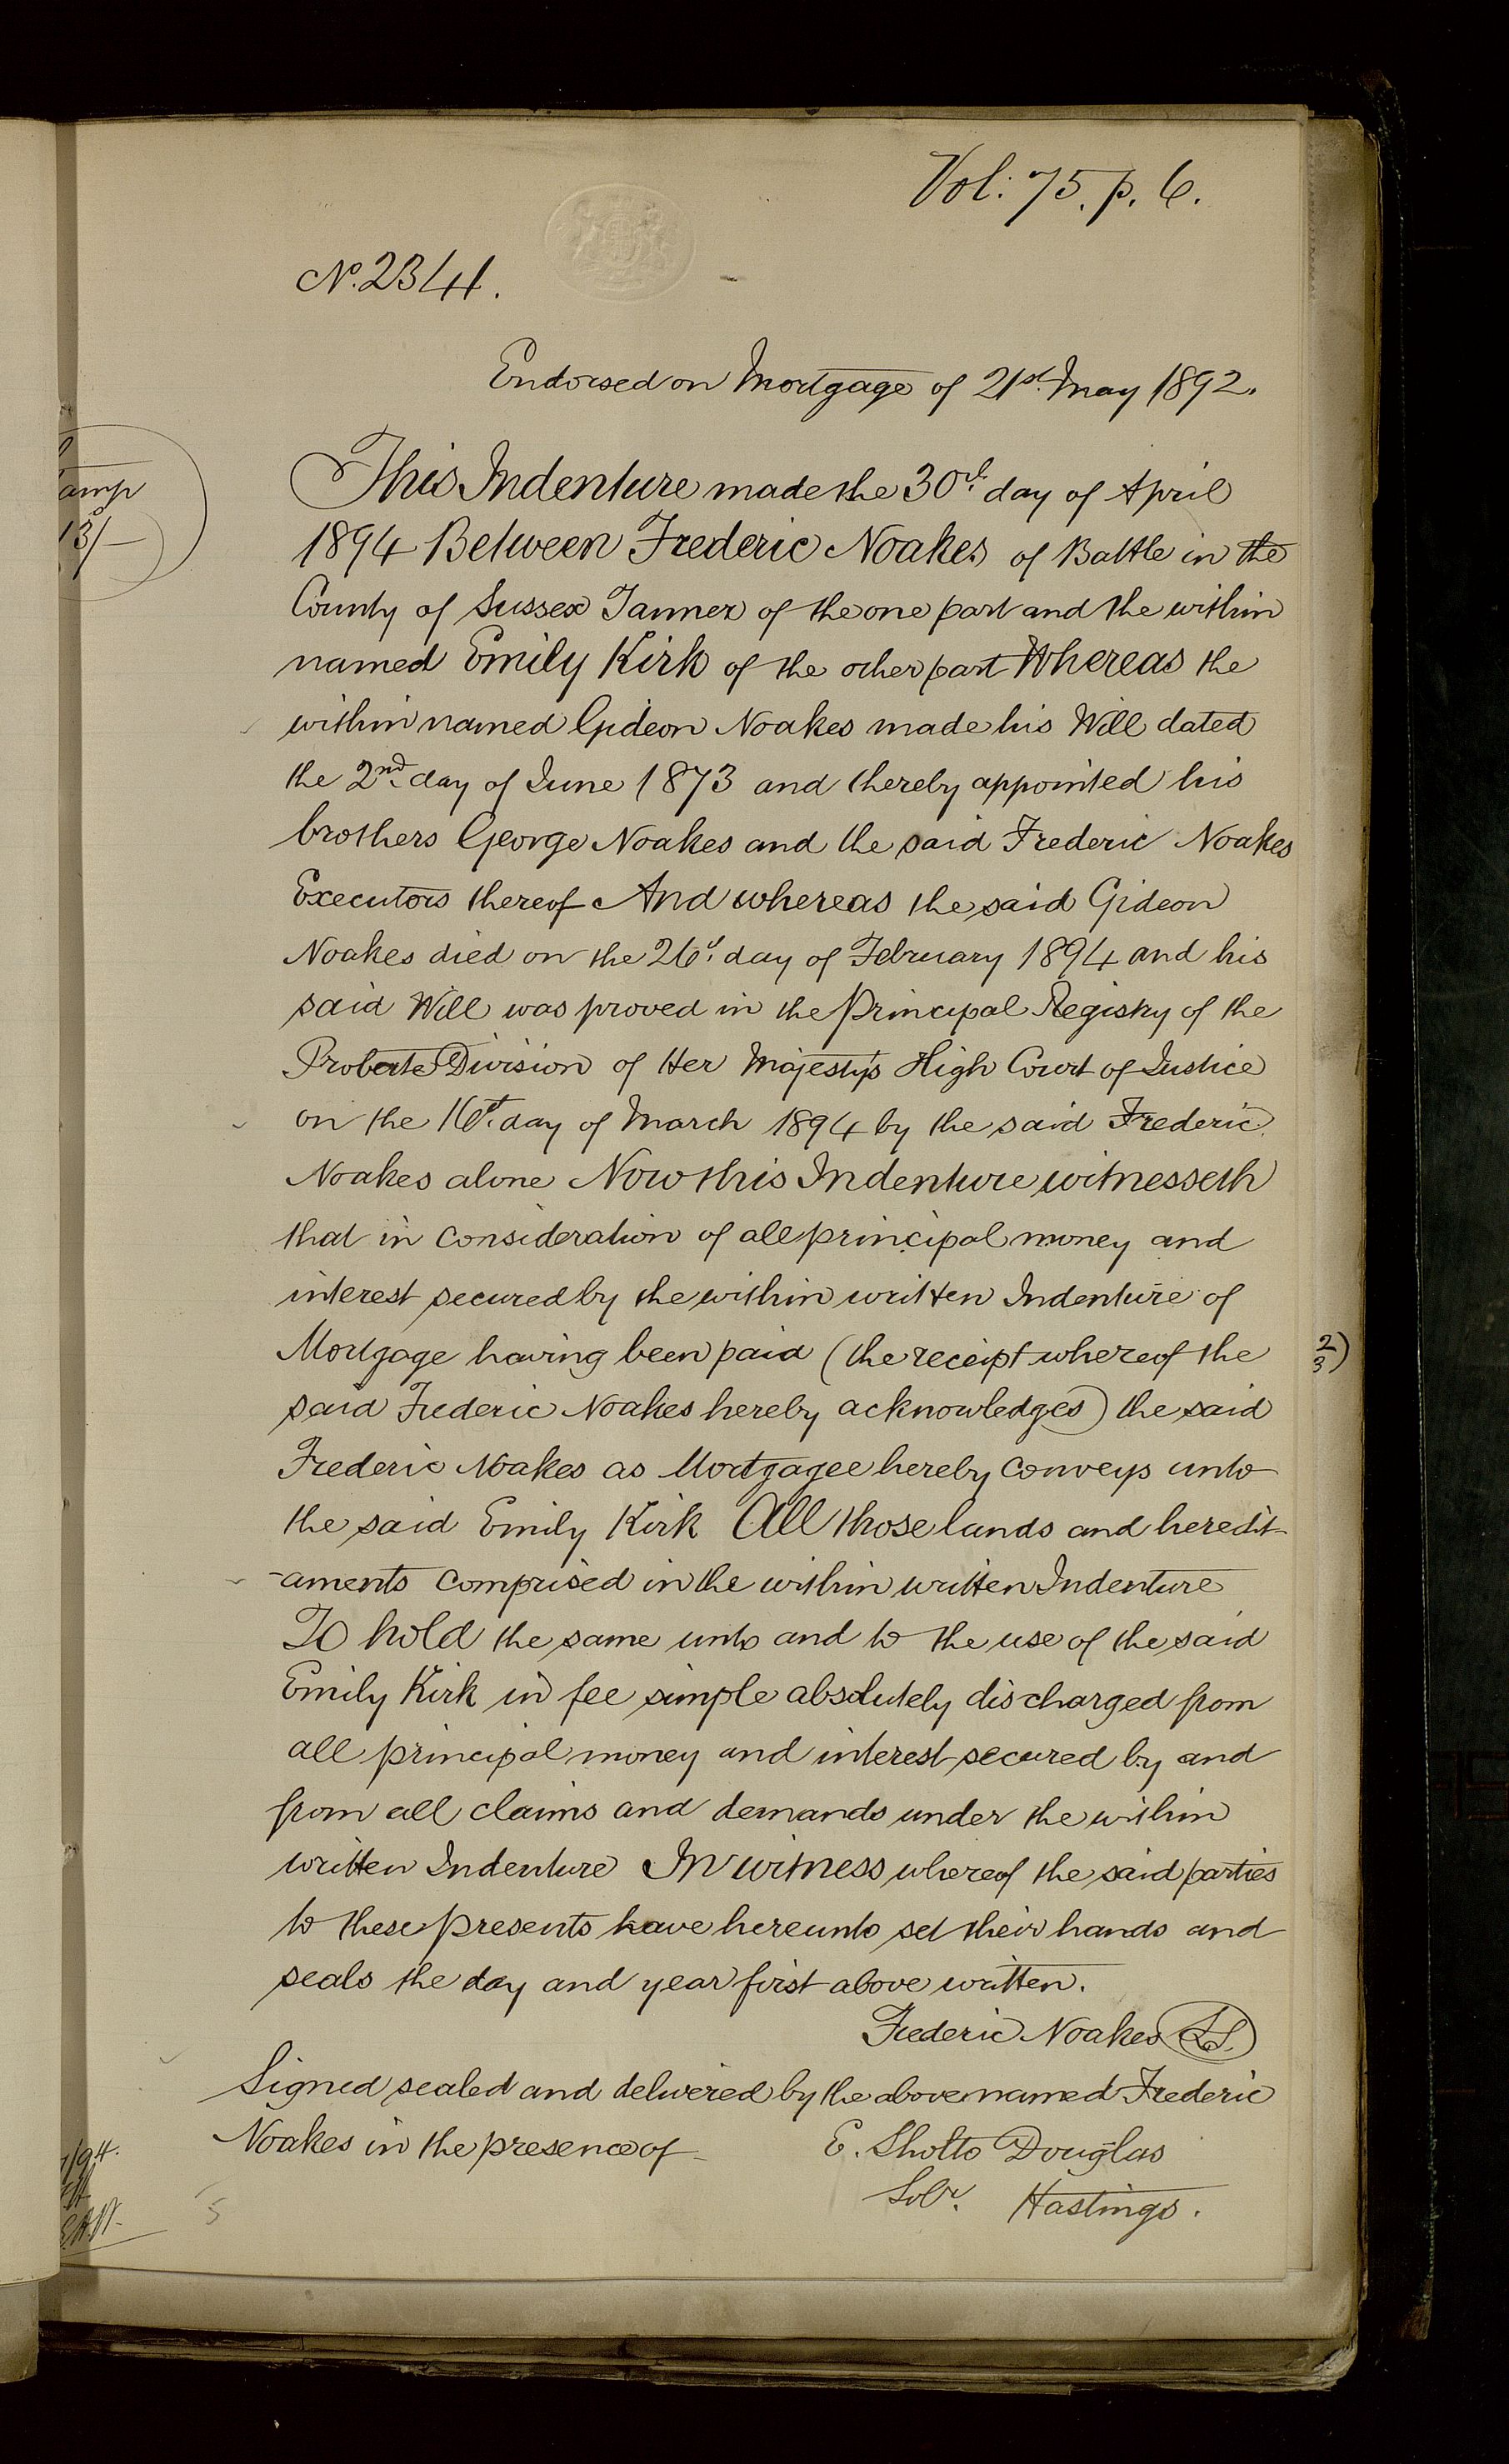 Vol: 75. p. 6.
No. 2344.
Endorsed on Mortgage of 21st May 1892.
amp
13/-
This Indenture made the 30th day of April
1894 Between Frederic Noakes of Battle in the
County of Sussex Tanner of the one part and the within
named Emily Kirk of the other part Whereas the
within named Gideon Noakes made his Will dated
the 2nd day of June 1873 and thereby appointed his
brothers George Noakes and the said Frederic Noakes
Executors thereof And whereas the said Gideon
Noakes died on the 26th day of February 1894 and his
said Will was proved in the Principal Registry of the
Probate Division of Her Majesty's High Court of Justice
on the 16th day of March 1894 by the said Frederic
Noakes alone Now this Indenture witnesseth
that in consideration of all principal money and
interest secured by the within written Indenture of
Mortgage having been paid (the receipt whereof the
2/3)
said Frederic Noakes hereby acknowledges) the said
Frederic Noakes as Mortgagee hereby conveys unto
the said Emily Kirk All those lands and heredit-
-aments comprised in the within written Indenture
To hold the same unto and to the use of the said
Emily Kirk in fee simple absolutely discharged from
all principal money and interest secured by and
from all claims and demands under the within
written Indenture In witness whereof the said parties
to these presents have hereunto set their hands and
seals the day and year first above written.
Frederic Noakes LS.
Signed sealed and delivered by the above named Frederic
Noakes in the presence of
E. Sholto Douglas
Solr. Hastings.